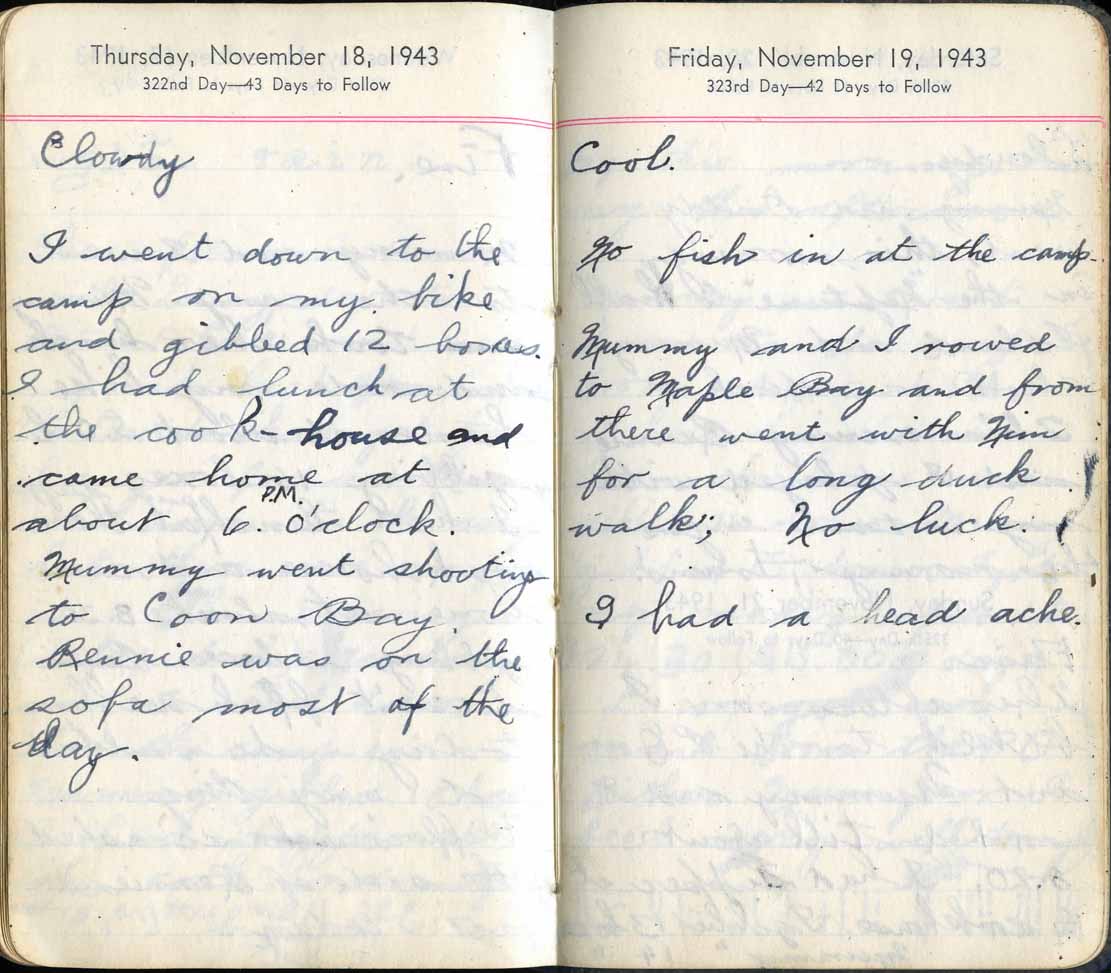 Thursday, November 18, 1943
322nd Day—43 Days to Follow
Clowdy
I went down to the
camp on my bike
and gibbed 12 boxes.
I had lunch at
the cook-house and
came home at
about 6 P.M. O'clock.
Mummy went shooting
to Coon Bay.
Rennie was on the
sofa most of the
day.
Friday, November 19, 1943
323rd Day—42 Days to Follow
Cool.
No fish in at the camp.
Mummy and I rowed
to Maple Bay and from
there went with Nim
for a long duck
walk; No luck.
I had a head ache.